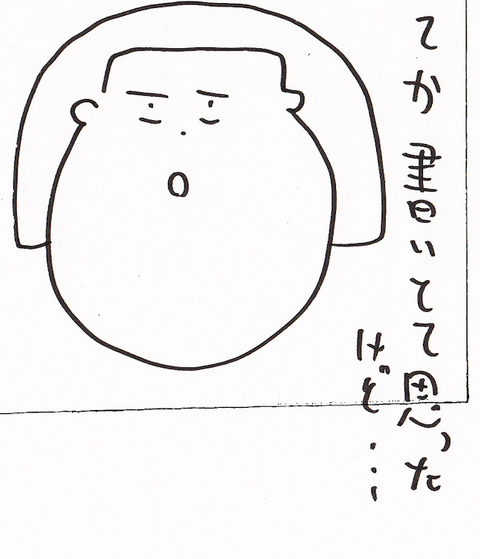 てか書いてて思った
けど…